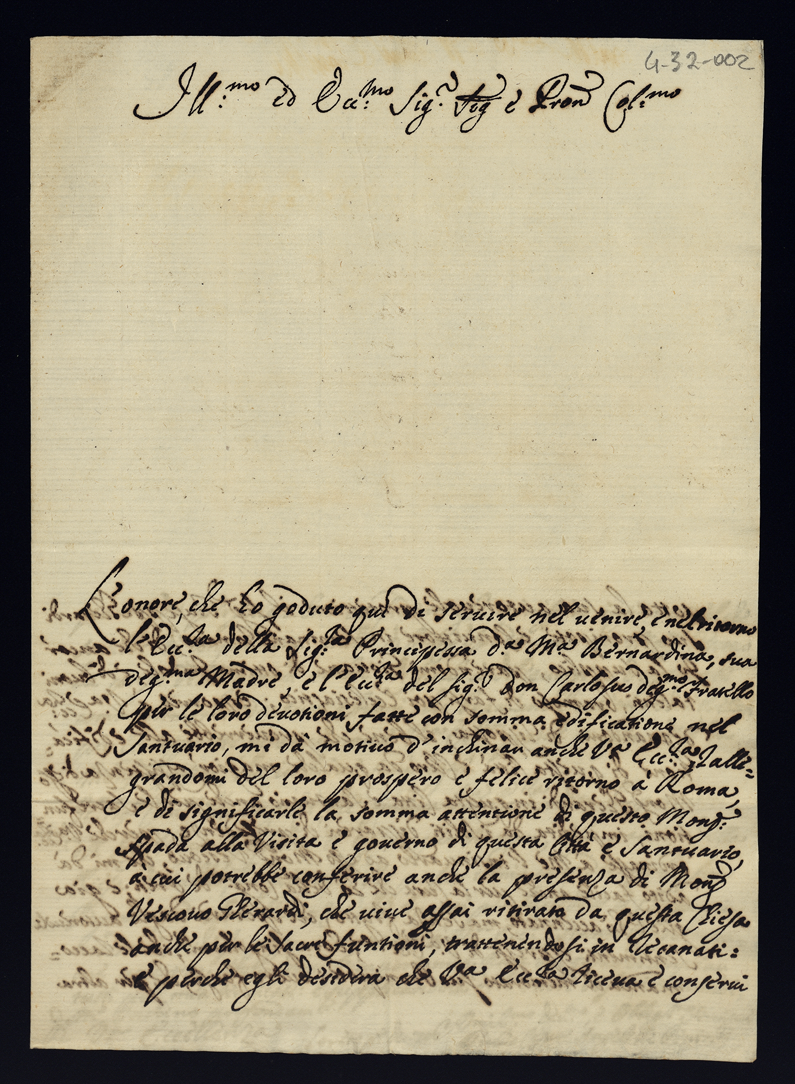 4-32-002
Ill:mo ed Ecc:mo Sig:r Sig è Pron Col:mo
L'onore, che hò goduto quì di seruire nel uenire, e nel ritorno
l'Ecc:za della Sig:ra Principessa Da Ma Bernardina, sua
deg:ma Madre, e l'Ecc:za del Sig:r Don Carlo suo deg:mo Fratello
per le loro deuotioni fatte con somma edificatione nel
Santuario, mi dà motiuo d'inchinar anche Va Ecc:za ralle=
grandomi del loro prospero e felice ritorno à Roma,
e di significarle la somma attentione di questo Monsr:
Spada alla Visita e gouerno di questa Città e Santuario,
a cui potrebbe conferire anche la presenza di Monsr
Vescouo Gherardi, che uiue assai ritirato da questa Chiesa
anche per le sacre funtioni, trattenendosi in Recanati:
E perche egli desidera che Va Ecc:za riceua e conserui